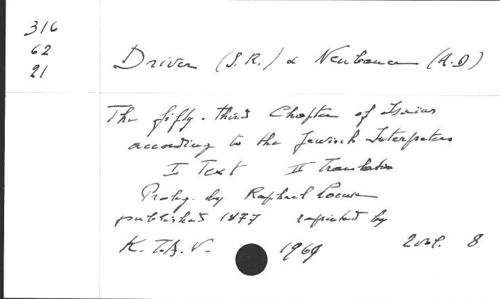 316
62
21
Driver (S.R.) & Neubauer (A.D)
The fifty-third Chapter of Isaias
according to the Jewish Interpreters
I Text II Translation
Proleg. by Raphael Loewe
published 1877 reprinted by
K.T.A.V. 1969 2 vol. 8